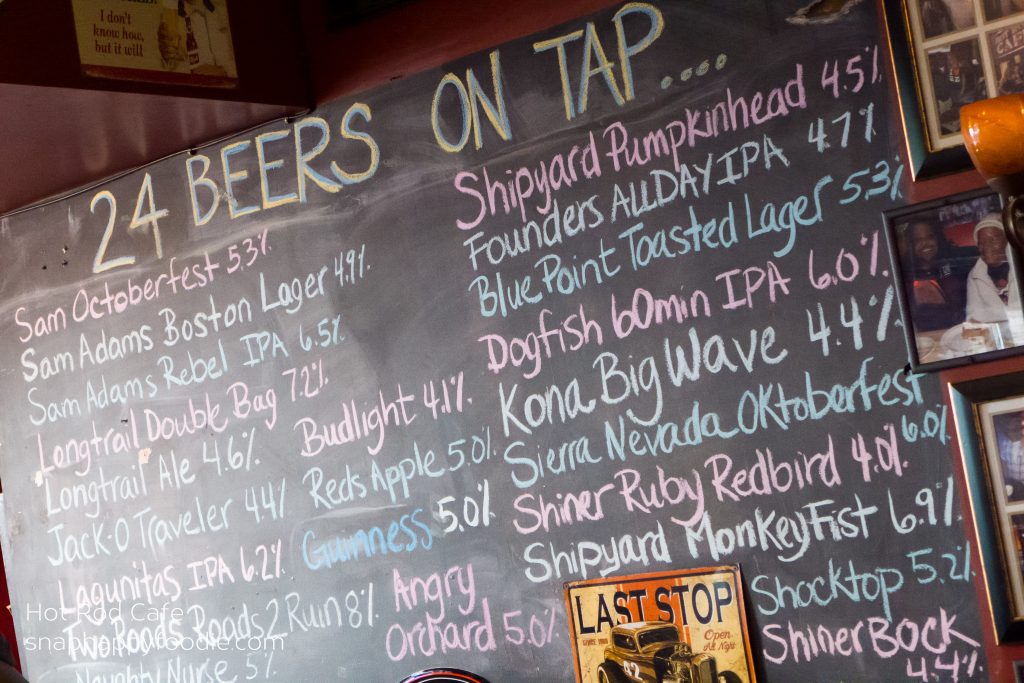 I don't
know how,
but it will
24 BEERS ON TAP....
Sam Octoberfest 5.3%
Sam Adams Boston Lager 4.9%
Sam Adams Rebel IPA 6.5%
Longtrail Double Bag 7.2%
Longtrail Ale 4.6%
Jack-O Traveler 4.4%
Lagunitas IPA 6.2%
Two Roads 2 Run 8%
Naughty Nurse 5%
Budlight 4.1%
Reds Apple 5.0%
Guinness 5.0%
Angry
Orchard 5.0%
Shipyard Pumpkinhead 4.5%
Founders ALLDAY IPA 4.7%
Blue Point Toasted Lager 5.3%
Dogfish 60min IPA 6.0%
Kona Big Wave 4.4%
Sierra Nevada OKtoberfest
6.0%
Shiner Ruby Redbird 4.0%
Shipyard MonkeyFist 6.9%
Shocktop 5.2%
ShinerBock
4.4%
LAST STOP
Open
All Night
92
Hot Rod Cafe
snaphappyfoodie.com